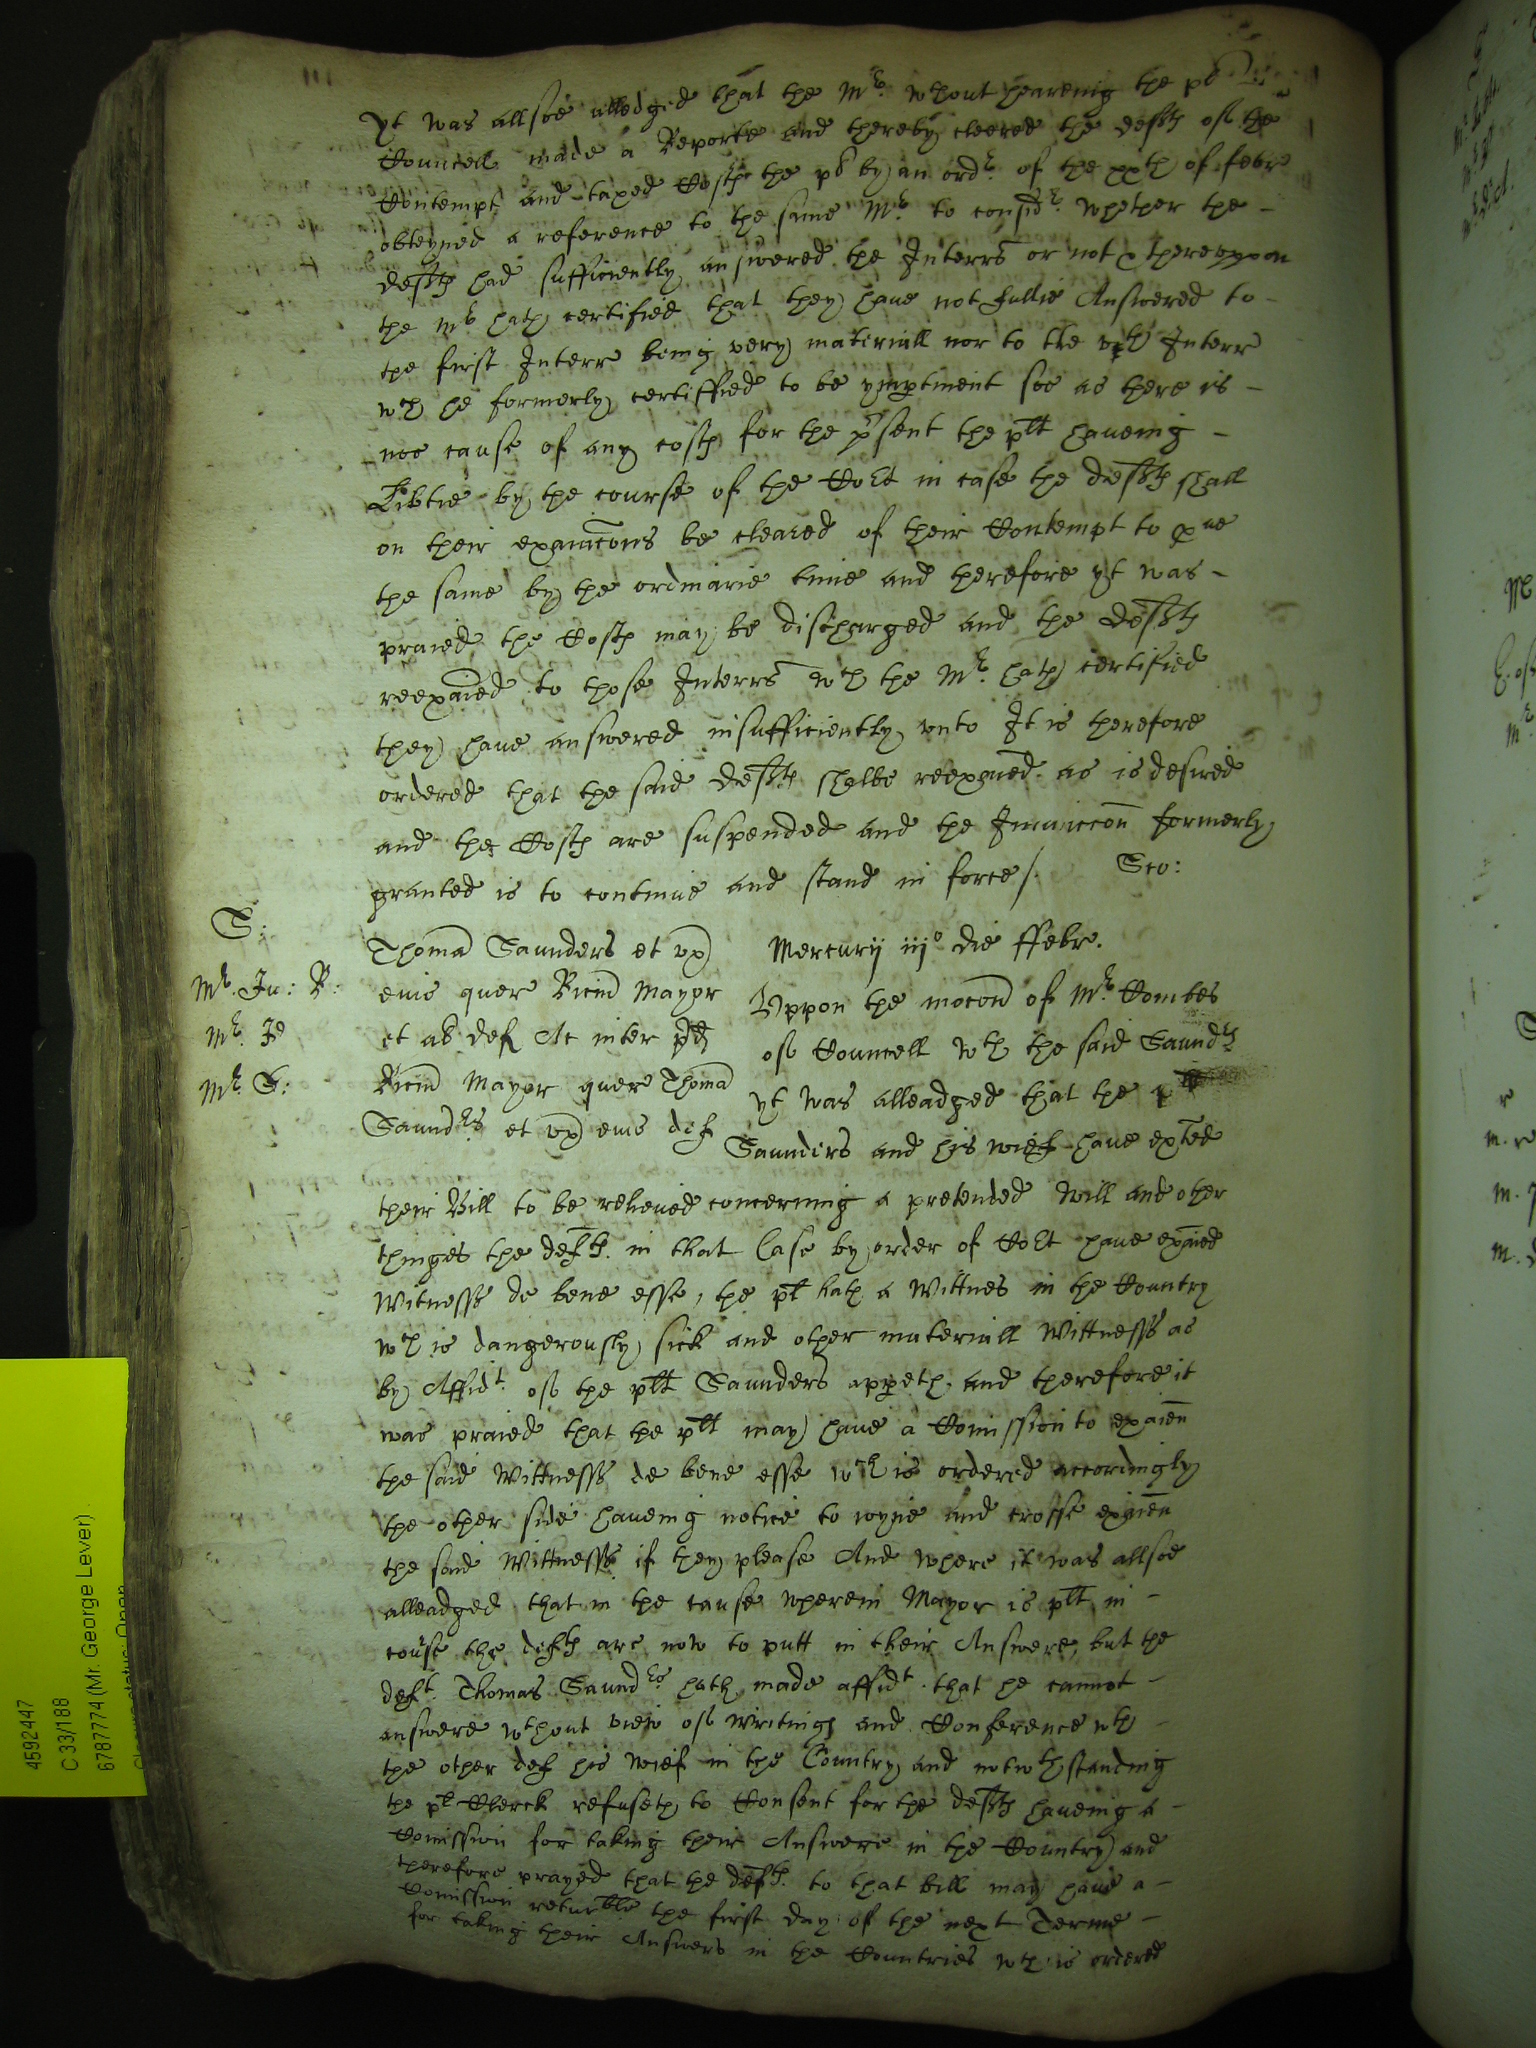 Yt was allsoe alledged that the Mr. wthout heareing the pl
Councell made a Reporte and thereby cleered the defts of the
Contempt and taxed Costs the pl by an ordr. of the xxth of febr
obteyned a reference to the same Mr. to considr. whether the -
defts had sufficiently answered the Interrs or not & thereuppon
the Mr hath certified that they have not fullie Answered to -
the first Interr being very materiall nor to the vth Interr
wch he formerly certiffied to be ympertinent soe as there is -
noe cause of any costs for the p'sent the plt haveing -
Libtie by the course of the Cort in case the defts shall
on their exaicons be cleared of their Contempt to have
the same by the ordinarie time and therefore yt was -
praied the Costs may be discharged and the defts
reexaied to those Interrs wch the Mr. hath certified
they have answered insufficiently unto It is therefore
ordered that the said defts shalbe reexaied as is desired
and the Costs are suspended and the Iniuccon formerly
granted is to continue and stand in force /. Sco:
S:
Mr. Ju: R:
Mr. Je
Mr. S:
Thoma Saunders et ux
eius quer Ricm Mayor
et al def Ac inter pd
Ricm Mayor quer Thoma
Saundrs et ux eius def
Mercurij iijo die ffebr.
Uppon the mocon of Mr. Combes
of Councell wth the said Saundrs
yt was alleadged that the plt
Saunders and his wief have exted
their Bill to be relieved concerning a pretended will and other
thinges the defts. in that Case by order of Cort have exaied
Witnesss de bene esse, the plt hath a Wittnes in the Country
wch is dangerously sick and other materiall Wittnesss as
by Affidt. of the plt Saunders appeth and therefore it
was praied that the plt may have a Comission to exaien
the said Wittnesss de bene esse wch is ordered accordingly
the other side haveing notice to ioyne and crosse exaien
the said Wittnesss if they please And where it was allsoe
alleadged that in the cause wherein Mayor is plt in -
course the defts are now to putt in their Answere, but the
deft. Thomas Saundrs hath made affidt. that he cannot -
answere wthout view of writings and Conference wth -
the other def his wief in the Country and notwthstanding
the pl Clerck refuseth to Consent for the defts haveing a -
Comission for taking their Answere in the Country and
therefore prayed that the defts. to that bill may have a -
Comission returble the first day of the next Terme -
for taking their Answers in the Countries wch is ordered
4592447
C 33/188
6787774 (Mr. George Lever)